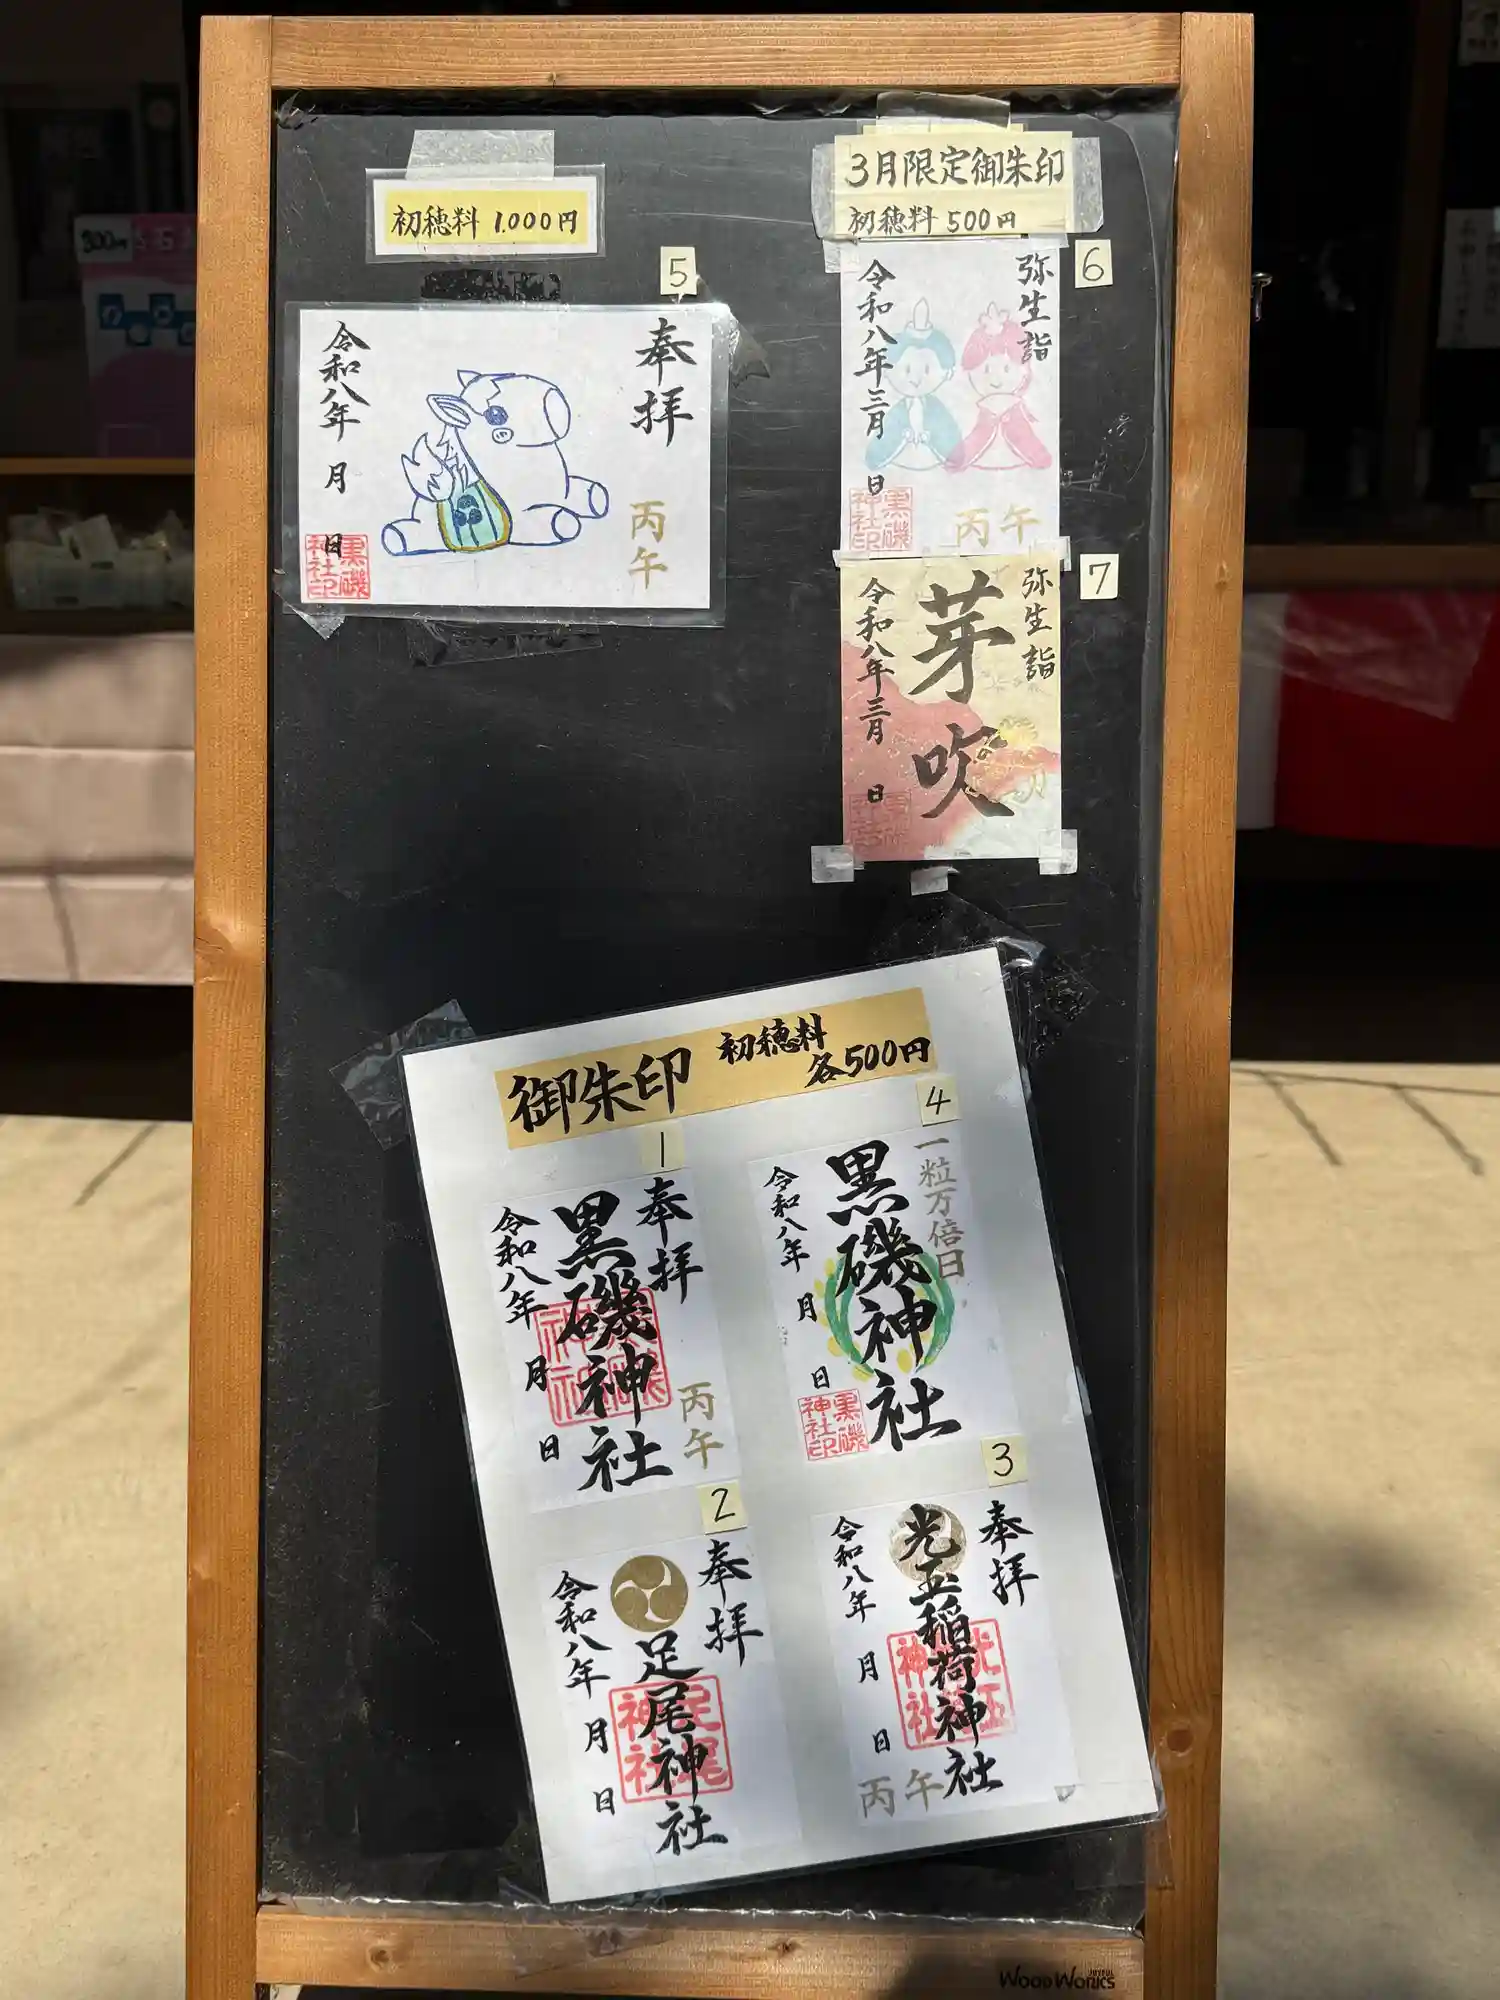 初穂料 1.000円
5
奉拝
丙午
令和八年 月 日
黒磯神社印
3月限定御朱印
初穂料 500円
6
弥生詣
令和八年三月 日
丙午
黒磯神社印
7
弥生詣
芽吹
令和八年三月 日
御朱印 初穂料
各500円
1
奉拝
黒磯神社
丙午
令和八年 月 日
4
一粒万倍日
黒磯神社
令和八年 月 日
黒磯神社印
2
奉拝
足尾神社
令和八年 月 日
足尾神社
3
奉拝
光玉稲荷神社
令和八年 月 日
丙午
300円
JOYFUL
WOOD WORKS